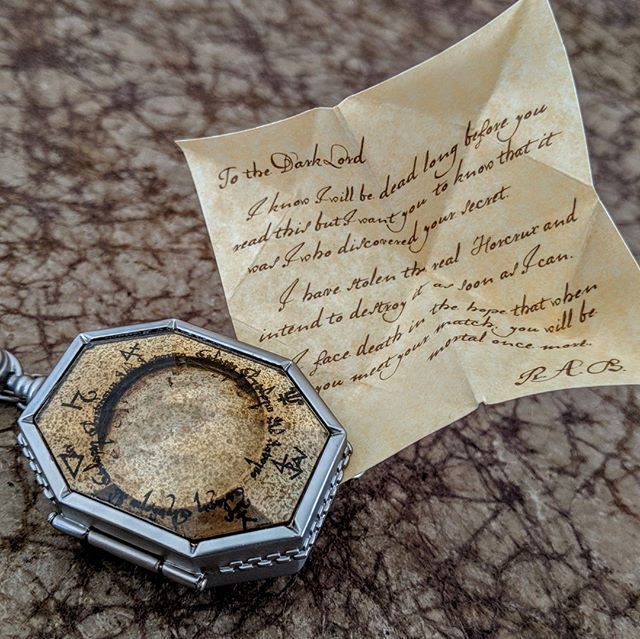 To the Dark Lord
I know I will be dead long before you
read this but I want you to know that it
was I who discovered your secret.
I have stolen the real Horcrux and
intend to destroy it as soon as I can.
I face death in the hope that when
you meet your match, you will be
mortal once more.
R. A. B.